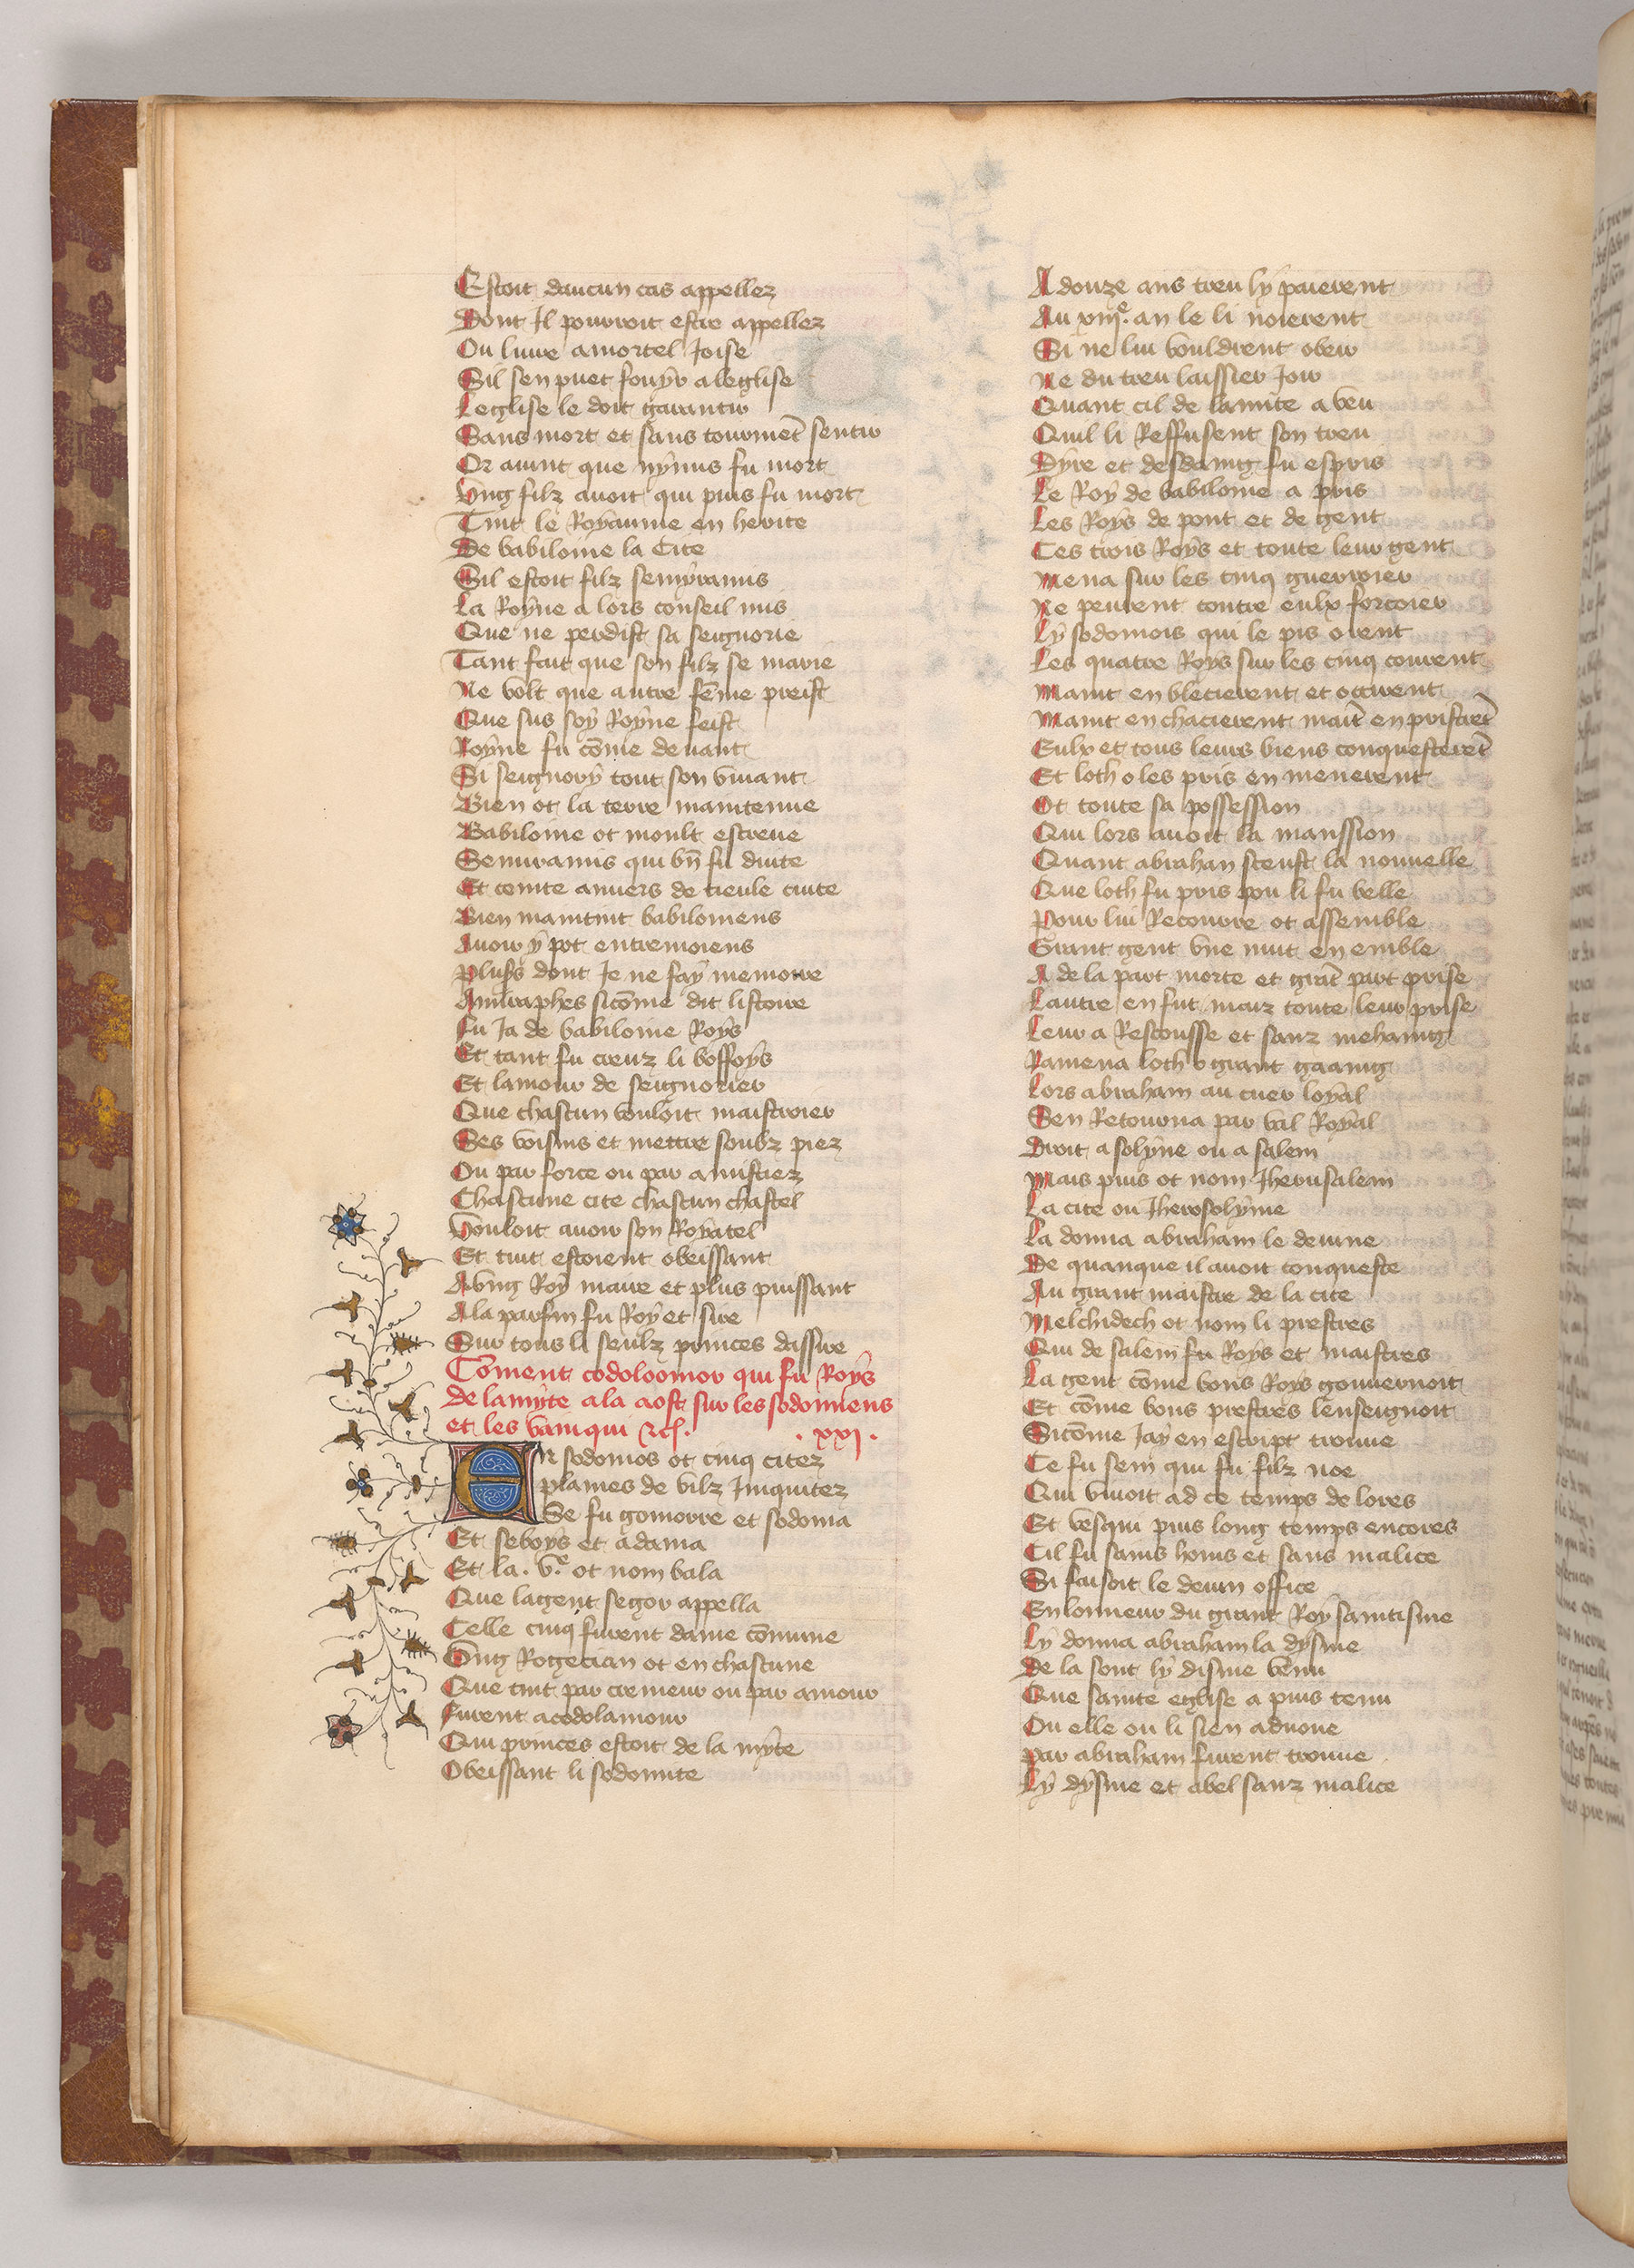 Estoit daucun cas appellez
Dont Il pourroit estre appellez
Ou liure a mortel Joise
Sil sen puet fouyr a leglise
Leglise le doit garantir
Sans mort et sans tourmēt sentir
Or auint que nynus fu mort
Vng filz auoit qui puis fu mort
Tint le Royaume en herite
De babiloine la Cite
Sil estoit filz semyramis
La Royne a lors conseil mis
Que ne perdist sa seignorie
Tant fait que son filz se marie
Ne volt que autre fēme preist
Que sus soy Royne feist
Royne fu cōme deuant
Si seignory tout son viuant
Bien ot la terre maintenue
Babiloine ot moult estreue
Semiramis qui bn̄ fu duite
Et ceinte anuers de tieule cuite
Bien maintint babiloniens
Auoir y pot entremoiens
Pluss dont Je ne say memoire
Amiraphes sicōme dit listoire
Fu Ja de babiloine Roys
Et tant fu creuz li boffoys
Et lamour de seignorier
Que chascun vouloit maistroier
Ses voisins et mettre soubz piez
Ou par force ou par amistiez
Chascune cite chascun chastel
Vouloit auoir son Royatel
Et tuit estoient obeissant
A vng Roy maire et plus puissant
A la parfin fu Roy et sire
Sur tous li seulz princes dassire
Coment codoloomor qui fu Roys
de lamyte a la aost sur les sodomiens
et les vainqui ⁊cʃ. . xxj .
En sodomos ot cinq citez
Plaines de vilz Iniquitez
Se fu gomorre et sodoma
Et seboys et adama
Et la . v.e ot nom bala
Que lagent segor appella
Celle cinq furent dame cōmune
Vng Rogecian ot en chascune
Que tint par cremeur ou par amour
Furent acodolamour
Qui princes estoit de la myte
Obeissant li sodomite
A douze ans treu ly paierent
Au xiij.e an le li noierent
Si ne lui vouldrent obeir
Ne du treu laissier Joir
Quant cil de lamite a veu
Quil li Reffusent son treu
Dyre et desdaing fu espris
Le Roy de babiloine a pris
Les Roys de pont et de gent
Ces trois Roys et toute leur gent
Mena sur les cinq guerroier
Ne peurent contre eulx forcoier
Ly sodomois qui le pis orent
Les quatre Roys sur les cinq courent
Maint en blecierent et occirent
Maint en chacierent maīt en pristrēt
Eulx et tous leurs biens conquesterēt
Et loth o les pris en menerent
Ot toute sa possession
Qui lors auoit la manssion
Quant abrahan sceust la nouuelle
Que loth fu pris pou li fu belle
Pour lui Recourre ot assemble
Grant gent vne nuit en emble
A de la part morte et grāt part prise
Lautre en fut maiz toute leur prise
Leur a Rescousse et sanz mehaing
Ramena loth o grant gaaing
Lors abraham au cuer loyal
Sen Retourna par val Royal
Droit a solyne ou a salem
Mais puis ot nom Jherusalem
La cite ou Jherosolyme
La donna abraham le deume
De quanque il auoit conqueste
Au grant maistre de la cite
Melchidech ot nom li prestres
Qui de salem fu Roys et maistres
La gent cōme bons Roys gouuernoit
Et cōme bons prestres lenseignoit
Sicōme Jay en escript trouue
Ce fu sem qui fu filz noe
Qui viuoit ad ce temps de lores
Et vesqui puis long temps encores
Cil fu sains homs et sans malice
Si faisoit le deuin office
En lonneur du grant Roy saintisme
Ly donna abraham la dysme
De la sont ly disme venu
Que sainte eglise a puis tenu
Ou elle ou li sien aduoue
Par abraham furent trouue
Ly dysme et abel sanz malice